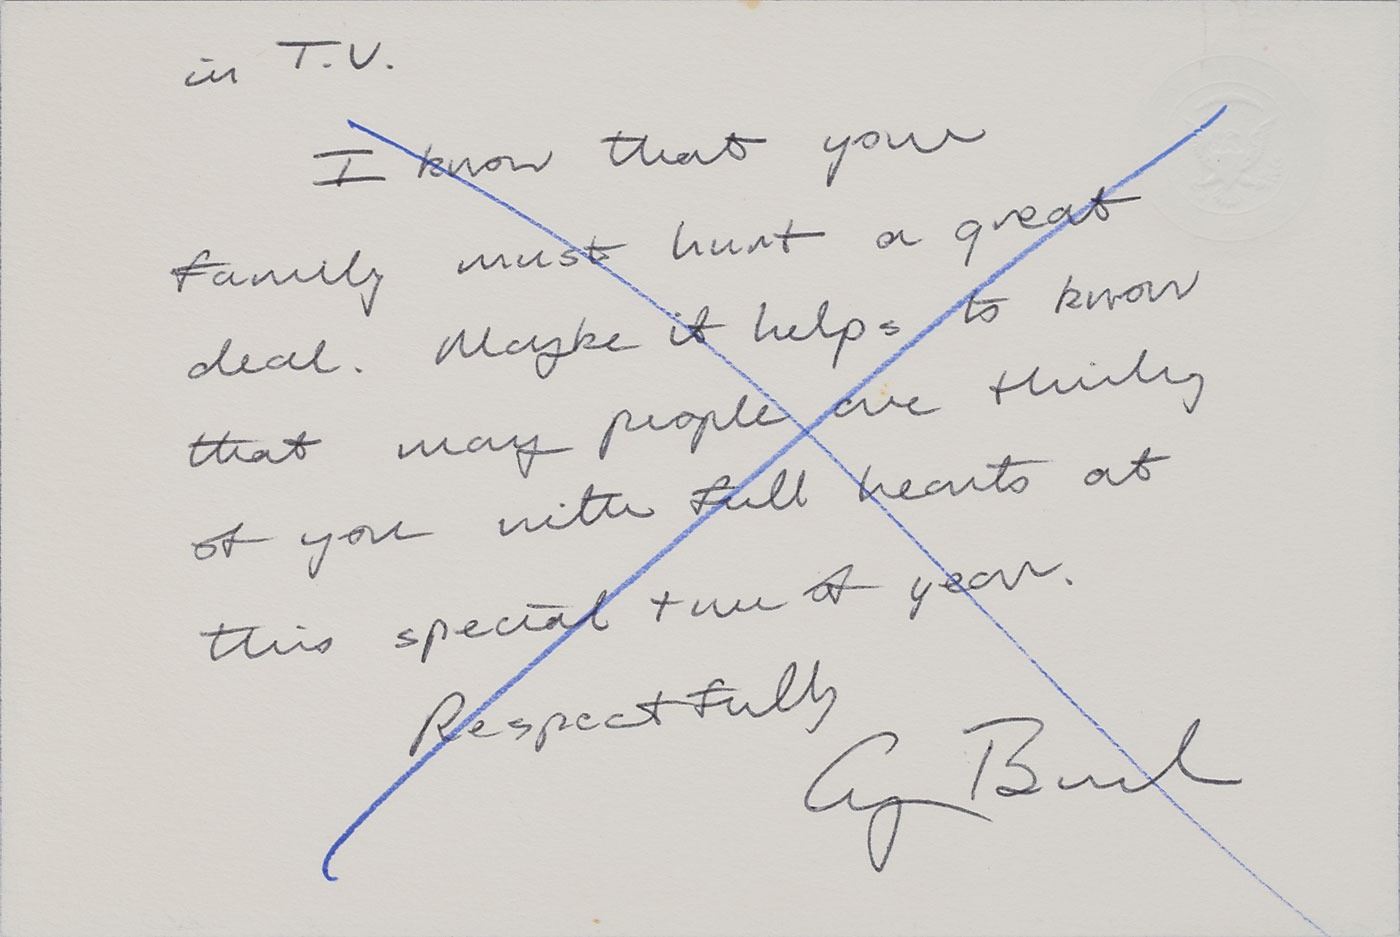 in T.V.
I know that your
family must hurt a great
deal. Maybe it helps to know
that many people are thinking
of you with full hearts at
this special time of year.
Respectfully
Gy Bush